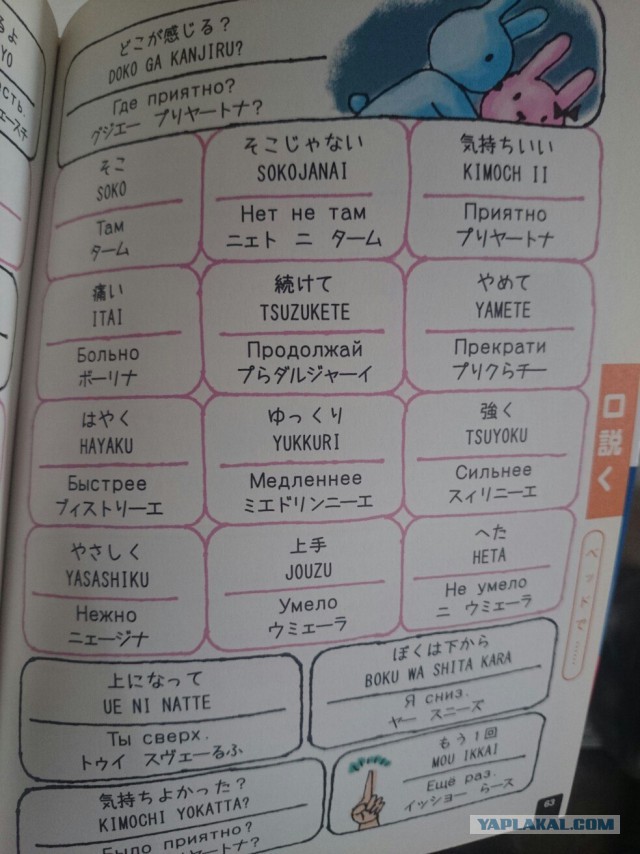 どこが感じる？
DOKO GA KANJIRU?
Где приятно?
グジェー プリヤートナ？
そこ
SOKO
Там
ターム
そこじゃない
SOKOJANAI
Нет не там
ニェト ニ ターム
気持ちいい
KIMOCH II
Приятно
プリヤートナ
痛い
ITAI
Больно
ボーリナ
続けて
TSUZUKETE
Продолжай
プらダルジャーイ
やめて
YAMETE
Прекрати
プリクらチー
はやく
HAYAKU
Быстрее
ブィストりーエ
ゆっくり
YUKKURI
Медленнее
ミエドリンニーエ
強く
TSUYOKU
Сильнее
スィリニーエ
やさしく
YASASHIKU
Нежно
ニェージナ
上手
JOUZU
Умело
ウミェーラ
へた
HETA
Не умело
ニ ウミェーラ
上になって
UE NI NATTE
Ты сверх.
トゥイ スヴェーるふ
ぼくは下から
BOKU WA SHITA KARA
Я сниз.
ヤー スニーズ
気持ちよかった？
KIMOCHI YOKATTA?
Было приятно?
もう1回
MOU IKKAI
Ещё раз.
イッショー らース
口説く
63
YAPLAKAL.COM